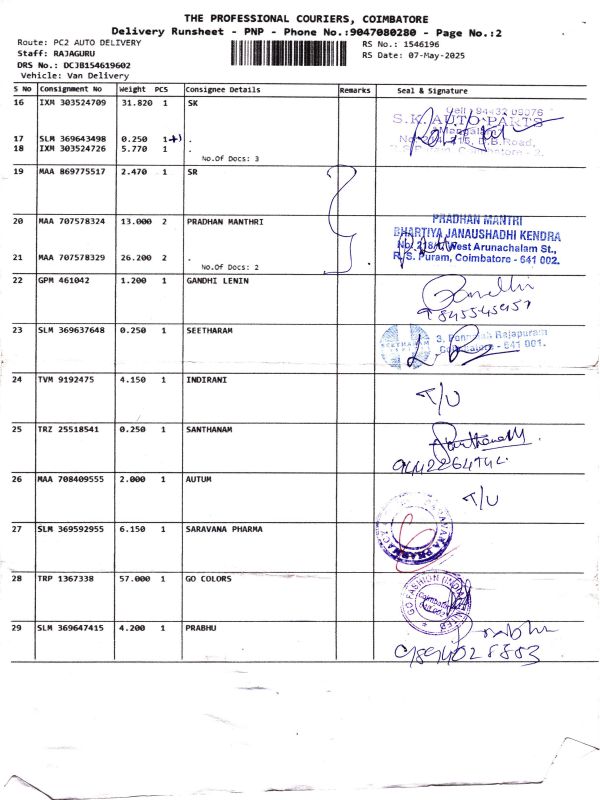 THE PROFESSIONAL COURIERS, COIMBATORE
Delivery Runsheet - PNP - Phone No.:9047080280 - Page No.:2
Route: PC2 AUTO DELIVERY
RS No.: 1546196
Staff: RAJAGURU
RS Date: 07-May-2025
DRS No.: DCJB154619602
Vehicle: Van Delivery
S No Consignment No Weight PCS Consignee Details Remarks Seal & Signature
16 IXM 303524709 31.820 1 SK
Cell: 94432 09076
S.K. AUTO PARTS
17 SLM 369643498 0.250 1 .
18 IXM 303524726 5.770 1 .
D.B.Road,
Coimbatore - 2.
No.Of Docs: 3
19 MAA 869775517 2.470 1 SR
20 MAA 707578324 13.000 2 PRADHAN MANTHRI
PRADHAN MANTRI
BHARTIYA JANAUSHADHI KENDRA
West Arunachalam St.,
R. S. Puram, Coimbatore - 641 002.
21 MAA 707578329 26.200 2 .
No.Of Docs: 2
22 GPM 461042 1.200 1 GANDHI LENIN
23 SLM 369637648 0.250 1 SEETHARAM
3, Ponnaiah Rajapuram
Coimbatore - 641 001.
24 TVM 9192475 4.150 1 INDIRANI
T/U
25 TRZ 25518541 0.250 1 SANTHANAM
26 MAA 708409555 2.000 1 AUTUM
T/U
27 SLM 369592955 6.150 1 SARAVANA PHARMA
SARAVANA PHARMACY
28 TRP 1367338 57.000 1 GO COLORS
GO FASHION (INDIA) LIMITED
29 SLM 369647415 4.200 1 PRABHU
Prabhu
9894028883